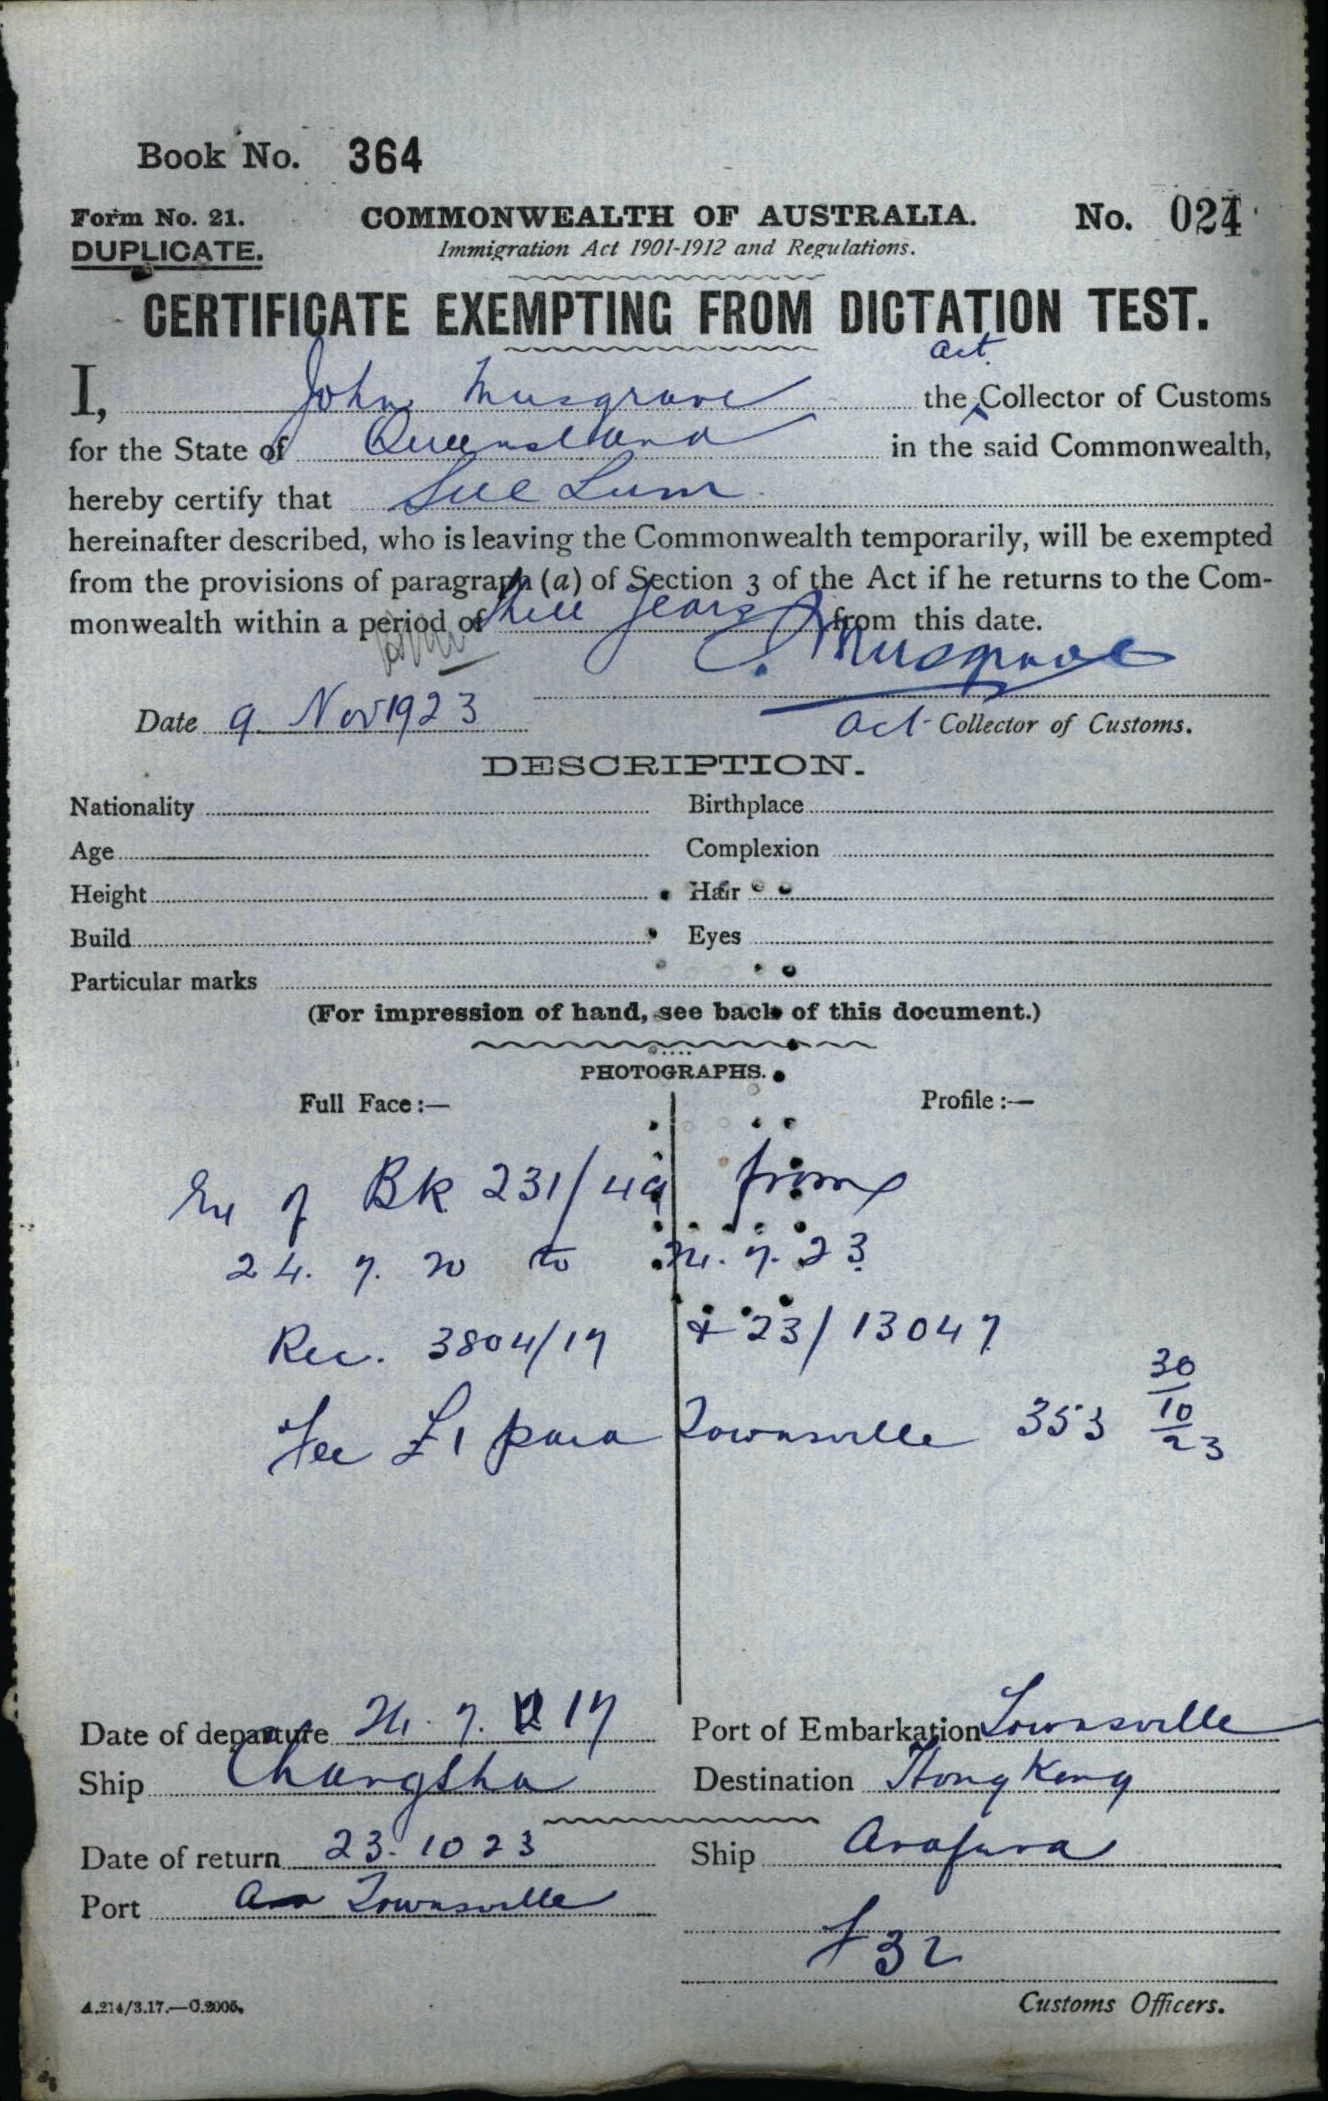 Book No. 364
Form No. 21. COMMONWEALTH OF AUSTRALIA. No. 024
DUPLICATE. Immigration Act 1901-1912 and Regulations.
CERTIFICATE EXEMPTING FROM DICTATION TEST.
act.
I, John Musgrave the Collector of Customs
for the State of Queensland in the said Commonwealth,
hereby certify that Sue Lum
hereinafter described, who is leaving the Commonwealth temporarily, will be exempted
from the provisions of paragraph (a) of Section 3 of the Act if he returns to the Com-
monwealth within a period of three years from this date.
J. Musgrave
Date 9. Nov 1923 act Collector of Customs.
DESCRIPTION.
Nationality Birthplace
Age Complexion
Height Hair
Build Eyes
Particular marks
(For impression of hand, see back of this document.)
PHOTOGRAPHS.
Full Face :— Profile :—
of Bk 231/49 from
24. 7. 20 to 24. 7. 23
Rec. 3804/17 & 23/13047
Fee £1 paid Townsville 353 30/10/23
Date of departure 24. 7. 17 Port of Embarkation Townsville
Ship Changsha Destination Hong Kong
Date of return 23. 10 23 Ship Arafura
Port Townsville
F 32
A.214/3.17.—C.2005. Customs Officers.